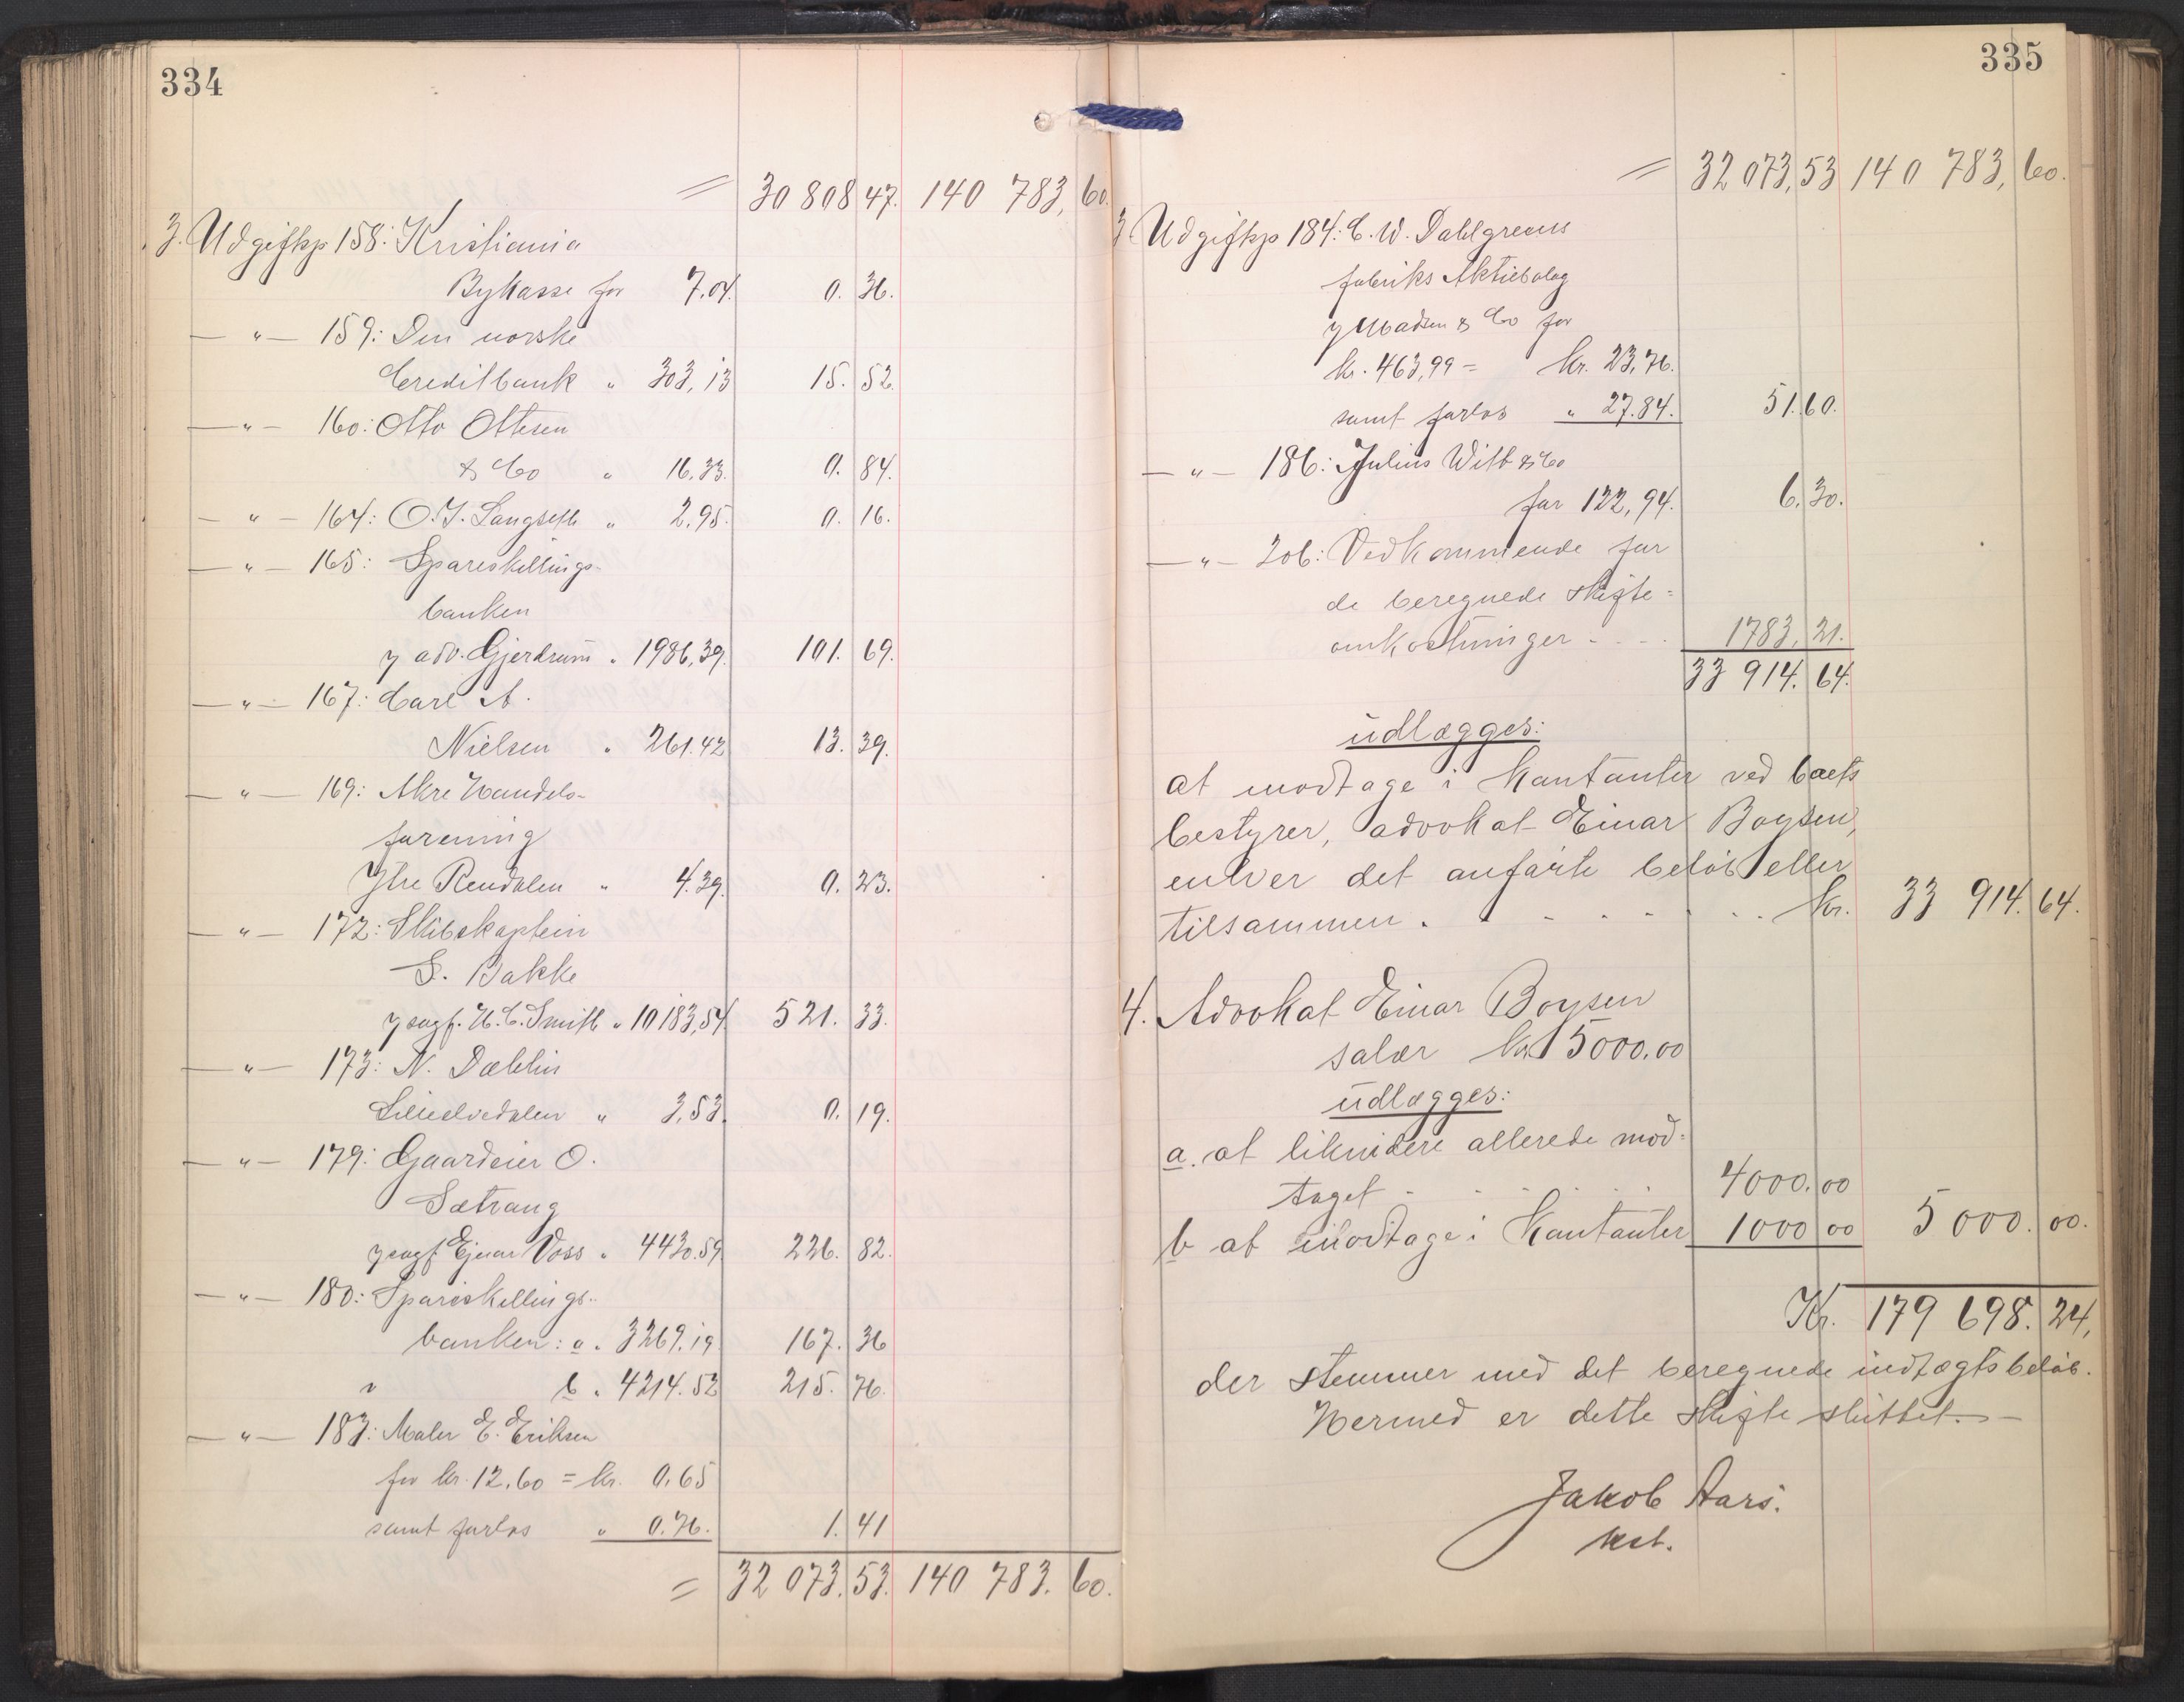 334
= 30 808 47. 140 783, 60.
3. Udgiftsp 158: Kristiania
Bykasse for 7,04. 0. 36.
— " — 159: Den norske
Creditbank " 303,13 15. 52.
— " — 160: Otto Ottesen
& Co " 16,33. 0. 84.
— " — 164: O. J. Langseth " 2,95. 0. 16.
— " — 165: Spareskillings-
banken
v adv. Gjerdrum " 1986,39. 101. 69.
— " — 167: Carl A.
Nielsen " 261.42 13. 39.
— " — 169: Akre Handels-
forening
Ytre Rendalen " 4.39. 0. 23.
— " — 172: Skibskaptein
S. Bakke
v sagf. H. C. Smith " 10 183,54. 521. 33.
— " — 173: N. Dæhlin
Lilleelvedalen " 3,53. 0. 19.
— " — 179: Gaardeier O.
Sætrang
v sagf Ejnar Voss " 4430.59 226. 82.
— " — 180: Spareskillings-
banken: a " 3269.19 167. 36
" b " 4214.52 215. 76.
— " — 183: Maler E. Eriksen
for kr. 12.60 = kr. 0.65
samt forlos " 0.76. 1. 41
= 32 073. 53. 140 783. 60.
335
= 32 073, 53 140 783, 60.
3. Udgiftsp 184: C. W. Dahlgrens
fabriks Aktiebolag
v Madsen & Co for
kr. 463,99 = kr. 23,76.
samt forlos " 27.84. 51. 60.
— " — 186: Julius Witt & Co
for 122,94. 6. 30.
— " — 206: Vedkommende for
de beregnede skifte=
omkostninger - - - - 1783, 21.
33 914. 64.
udlægges:
at modtage i kontanter ved boets
bestyrer, advokat Einar Boysen,
enhver det anførte beløb eller
tilsammen . . . . . . . . kr. 33 914. 64.
4. Advokat Einar Boysen
salær kr. 5000.00
udlægges:
a. at likvidere allerede mod=
taget - - - - - 4000. 00
b at modtage i Kontanter 1000 00 5 000. 00.
Kr. 179 698. 24,
der stemmer med det beregnede indtægtsbeløb.
Hermed er dette skifte sluttet. —
Jakob Aars.
kst.